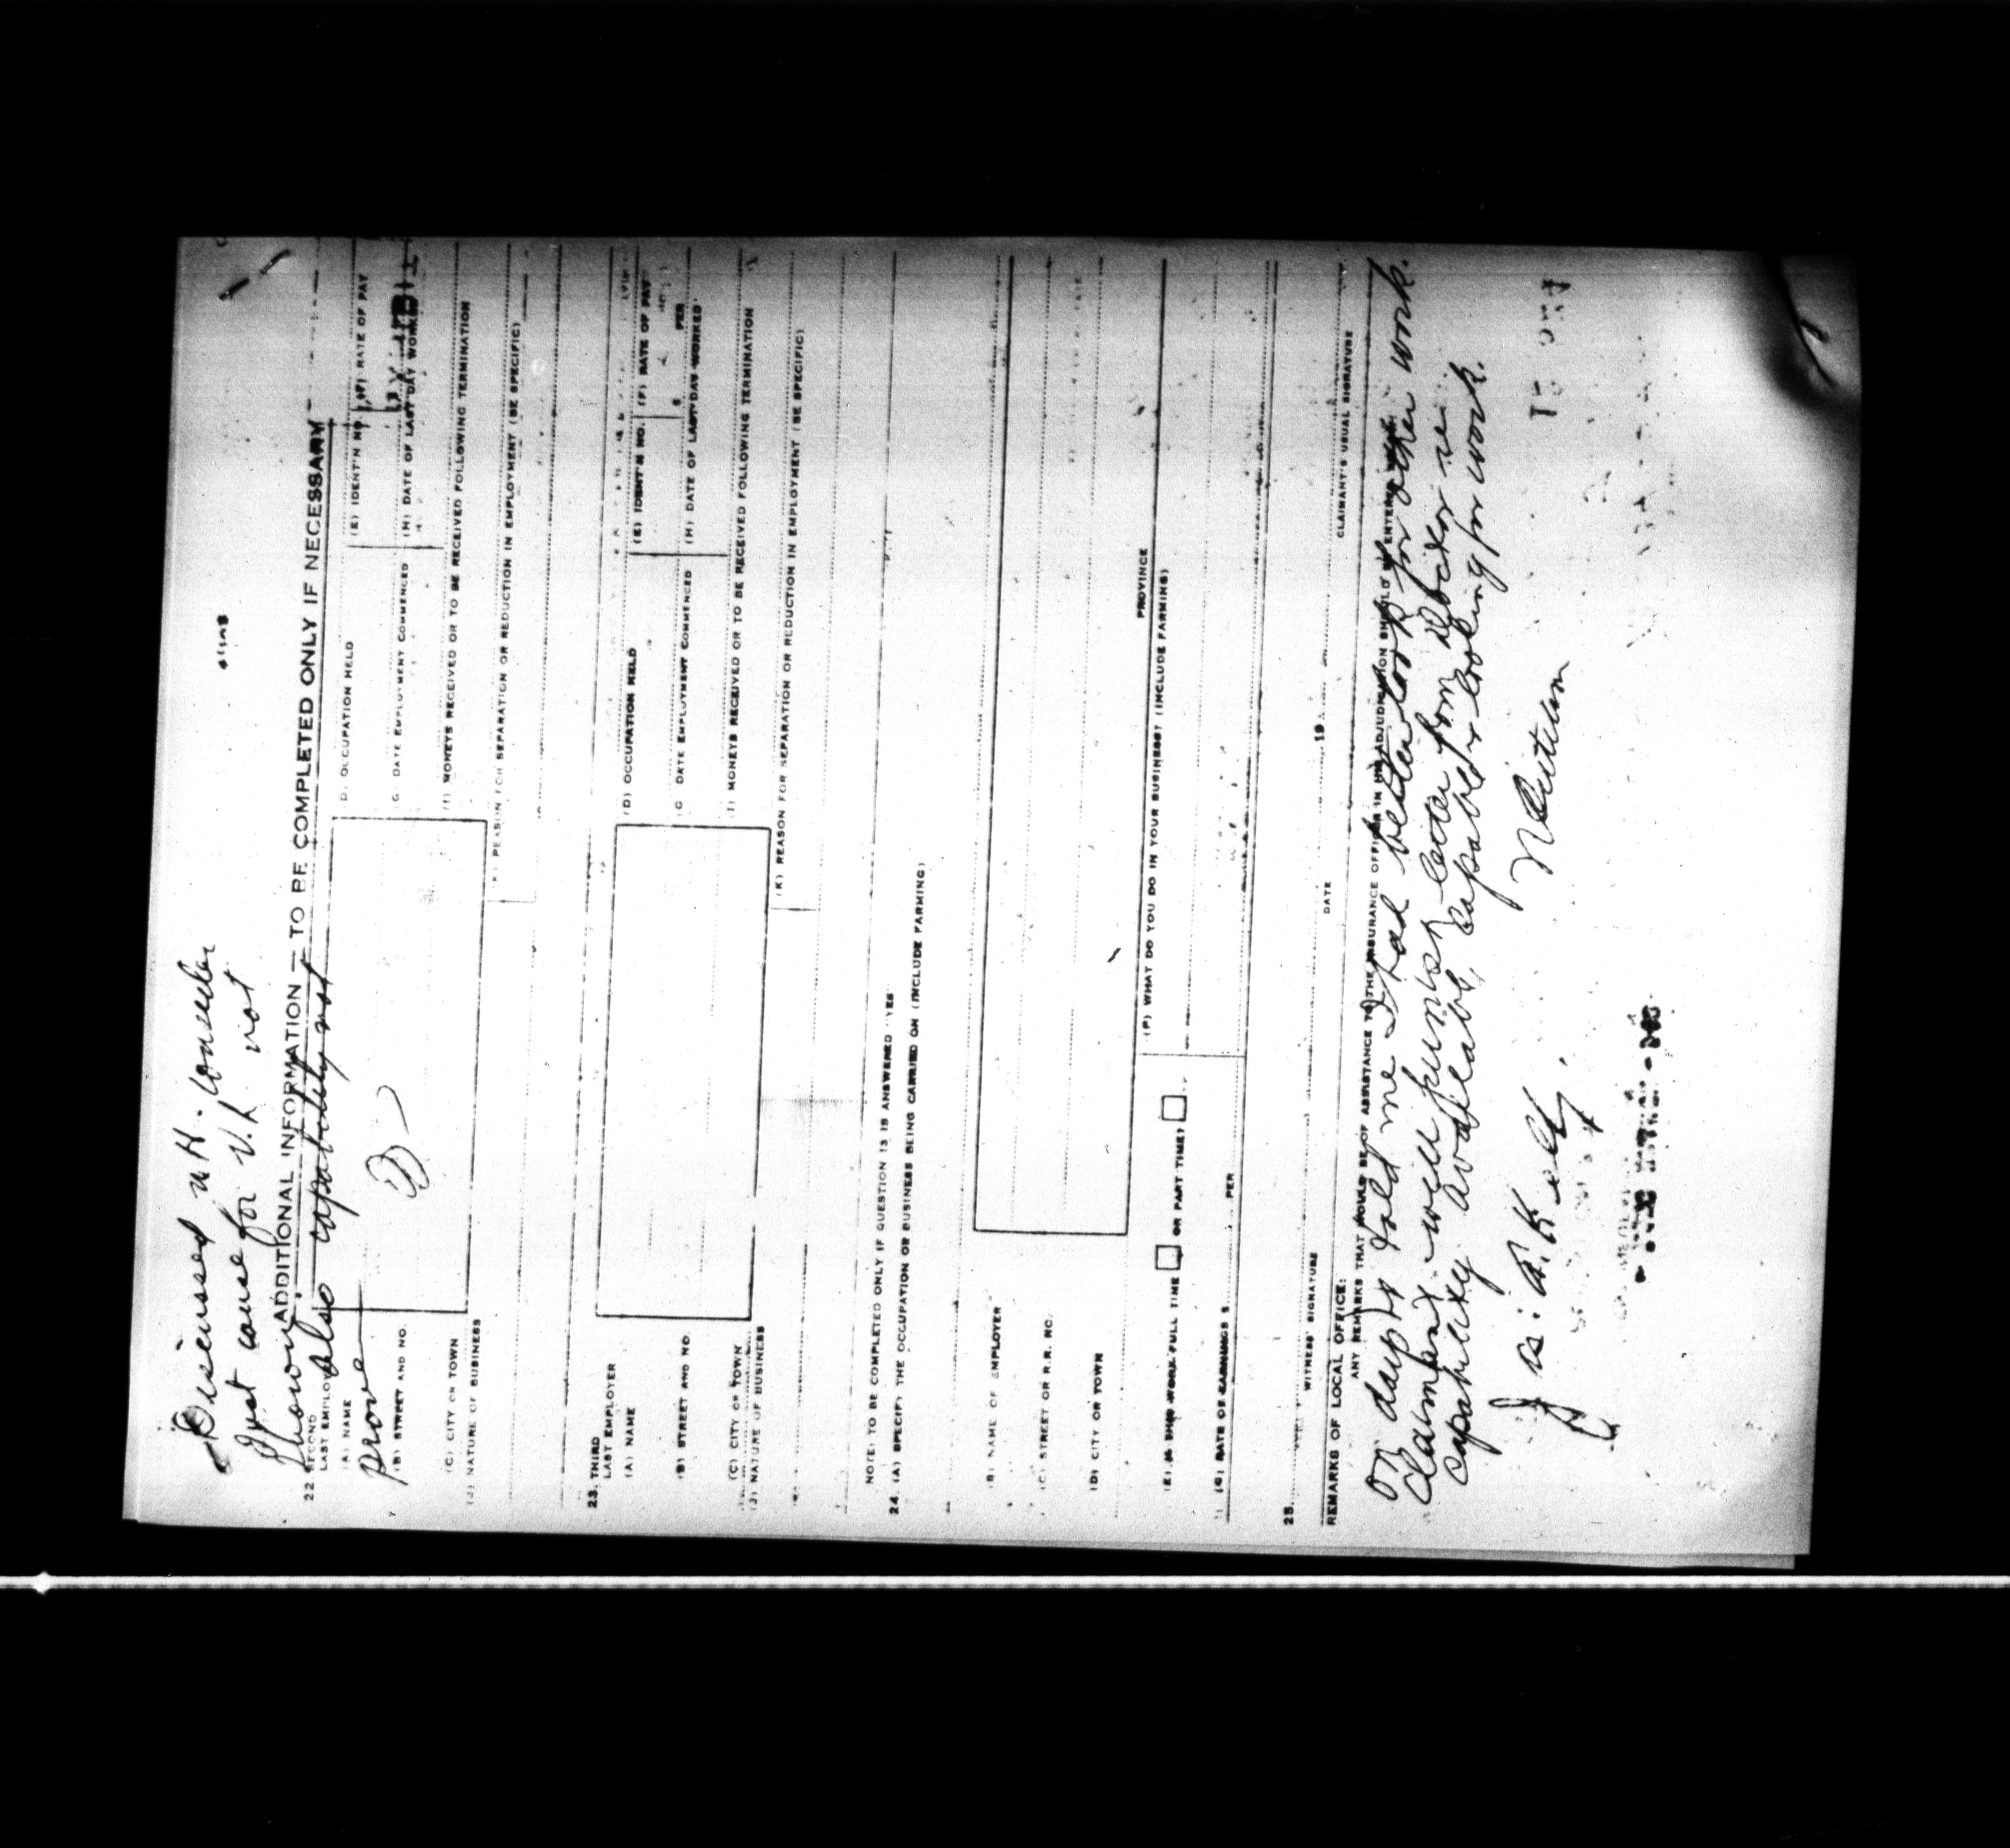 Discussed w H. Consider
Just cause for V.L. not
shown
also capability not
prove
ADDITIONAL INFORMATION — TO BE COMPLETED ONLY IF NECESSARY
22. SECOND
LAST EMPLOYER
(A) NAME
(D) OCCUPATION HELD
(E) IDENT'N NO.
(F) RATE OF PAY
(B) STREET AND NO.
(G) DATE EMPLOYMENT COMMENCED
(H) DATE OF LAST DAY WORKED
(C) CITY OR TOWN
(I) MONEYS RECEIVED OR TO BE RECEIVED FOLLOWING TERMINATION
(J) NATURE OF BUSINESS
(K) REASON FOR SEPARATION OR REDUCTION IN EMPLOYMENT (BE SPECIFIC)
23. THIRD
LAST EMPLOYER
(A) NAME
(D) OCCUPATION HELD
(E) IDENT'N NO.
(F) RATE OF PAY
$ PER
(B) STREET AND NO.
(G) DATE EMPLOYMENT COMMENCED
(H) DATE OF LAST DAY WORKED
(C) CITY OR TOWN
(I) MONEYS RECEIVED OR TO BE RECEIVED FOLLOWING TERMINATION
(J) NATURE OF BUSINESS
(K) REASON FOR SEPARATION OR REDUCTION IN EMPLOYMENT (BE SPECIFIC)
NOTE: TO BE COMPLETED ONLY IF QUESTION 13 IS ANSWERED "YES"
24. (A) SPECIFY THE OCCUPATION OR BUSINESS BEING CARRIED ON (INCLUDE FARMING)
(B) NAME OF EMPLOYER
(C) STREET OR R.R. NO.
(D) CITY OR TOWN
PROVINCE
(E) IS THIS WORK FULL TIME OR PART TIME?
(F) WHAT DO YOU DO IN YOUR BUSINESS? (INCLUDE FARMING)
(G) RATE OF EARNINGS $ PER
25.
WITNESS' SIGNATURE
DATE
19
CLAIMANT'S USUAL SIGNATURE
REMARKS OF LOCAL OFFICE:
ANY REMARKS THAT WOULD BE OF ASSISTANCE TO THE INSURANCE OFFICER IN HIS ADJUDICATION SHOULD BE ENTERED
told me I had better look for other work.
Claimant will furnish letter from doctor re
capability available, capable & looking for work.